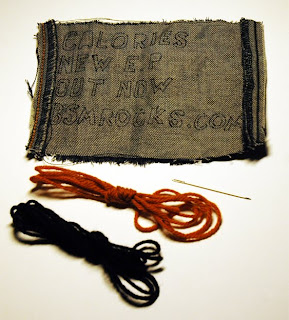 CALORIES
NEW E.P
OUT NOW
BSMROCKS.COM